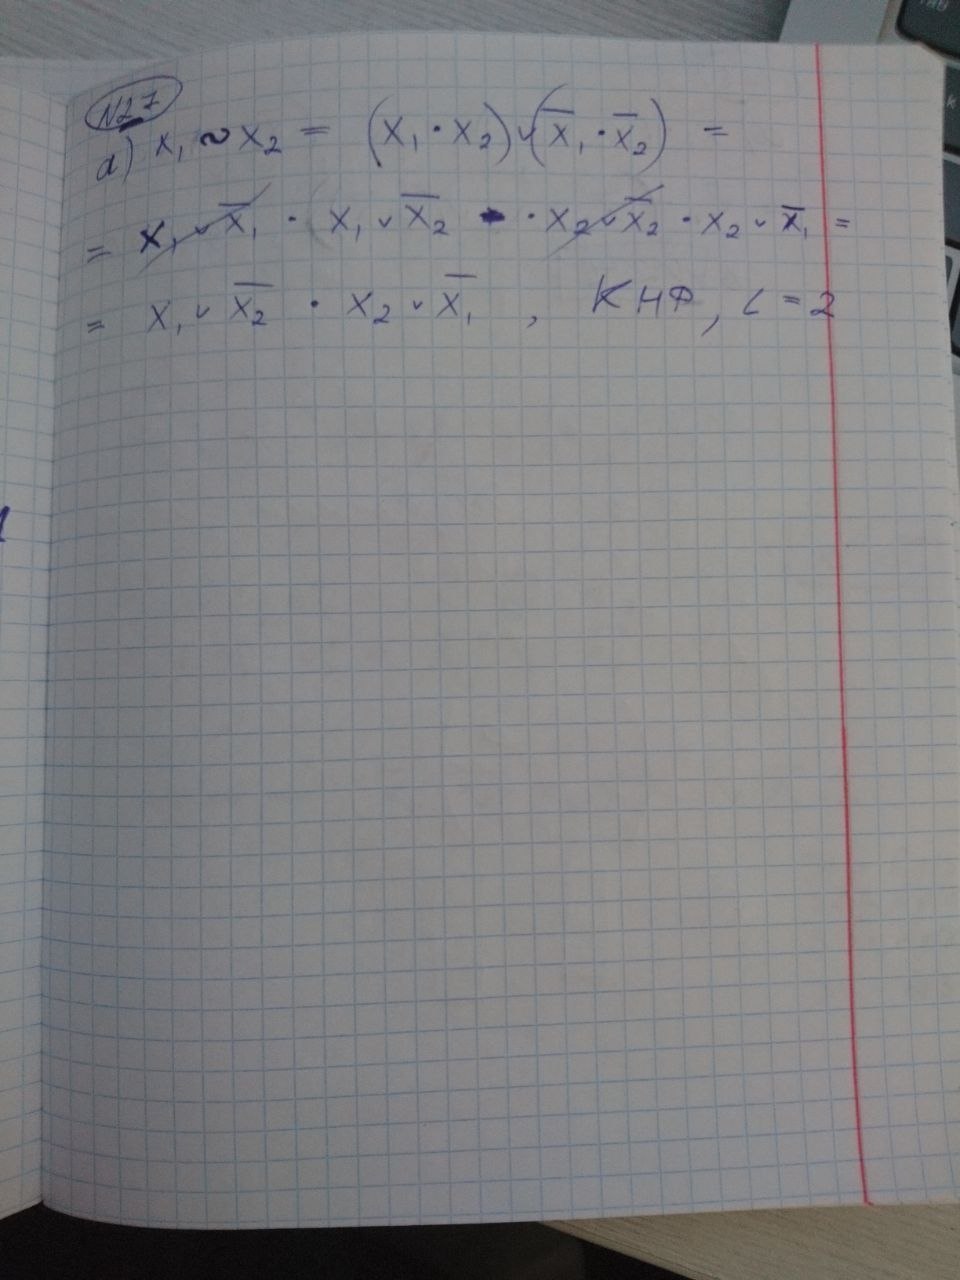 N27
a) x₁ ~ x₂ = (x₁ · x₂) ∨ (x̅₁ · x̅₂) =
= x₁ ∨ x̅₁ · x₁ ∨ x̅₂ · x₂ ∨ x̅₂ · x₂ ∨ x̅₁ =
= x₁ ∨ x̅₂ · x₂ ∨ x̅₁ , КНФ, L = 2